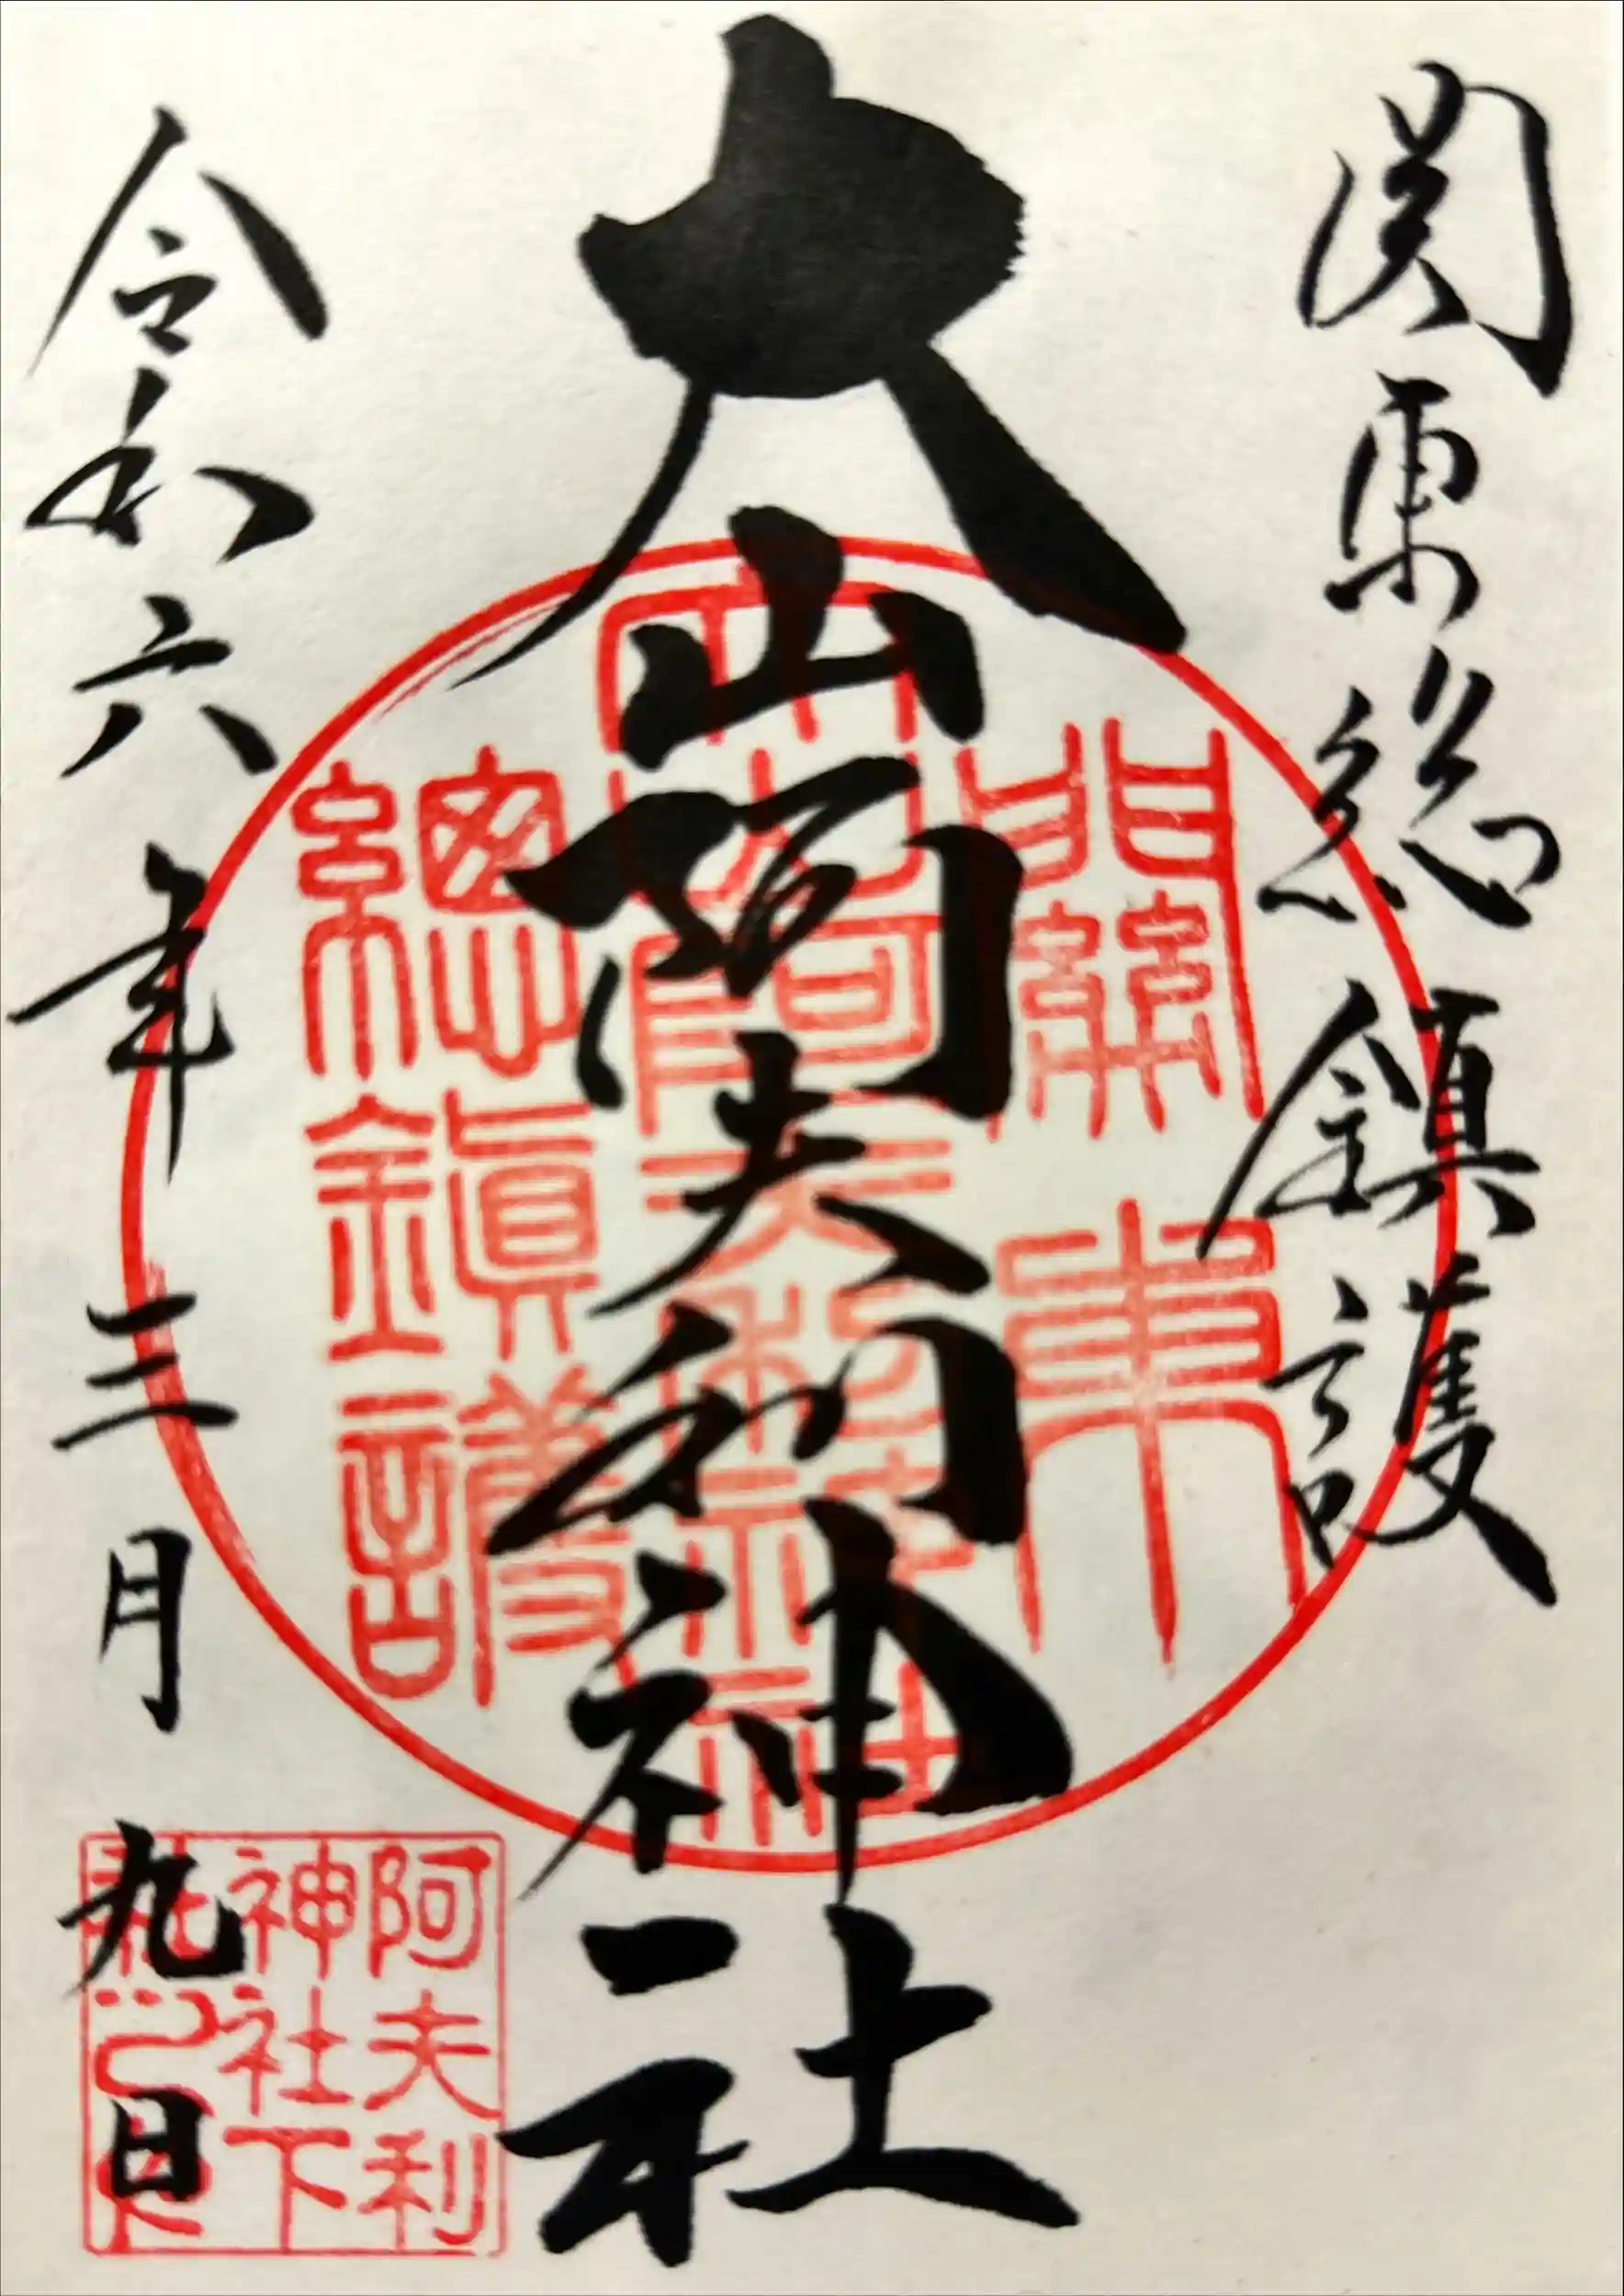 関東総鎮護
大山阿夫利神社
令和六年三月九日
關東
總鎮護
阿夫利
神社下